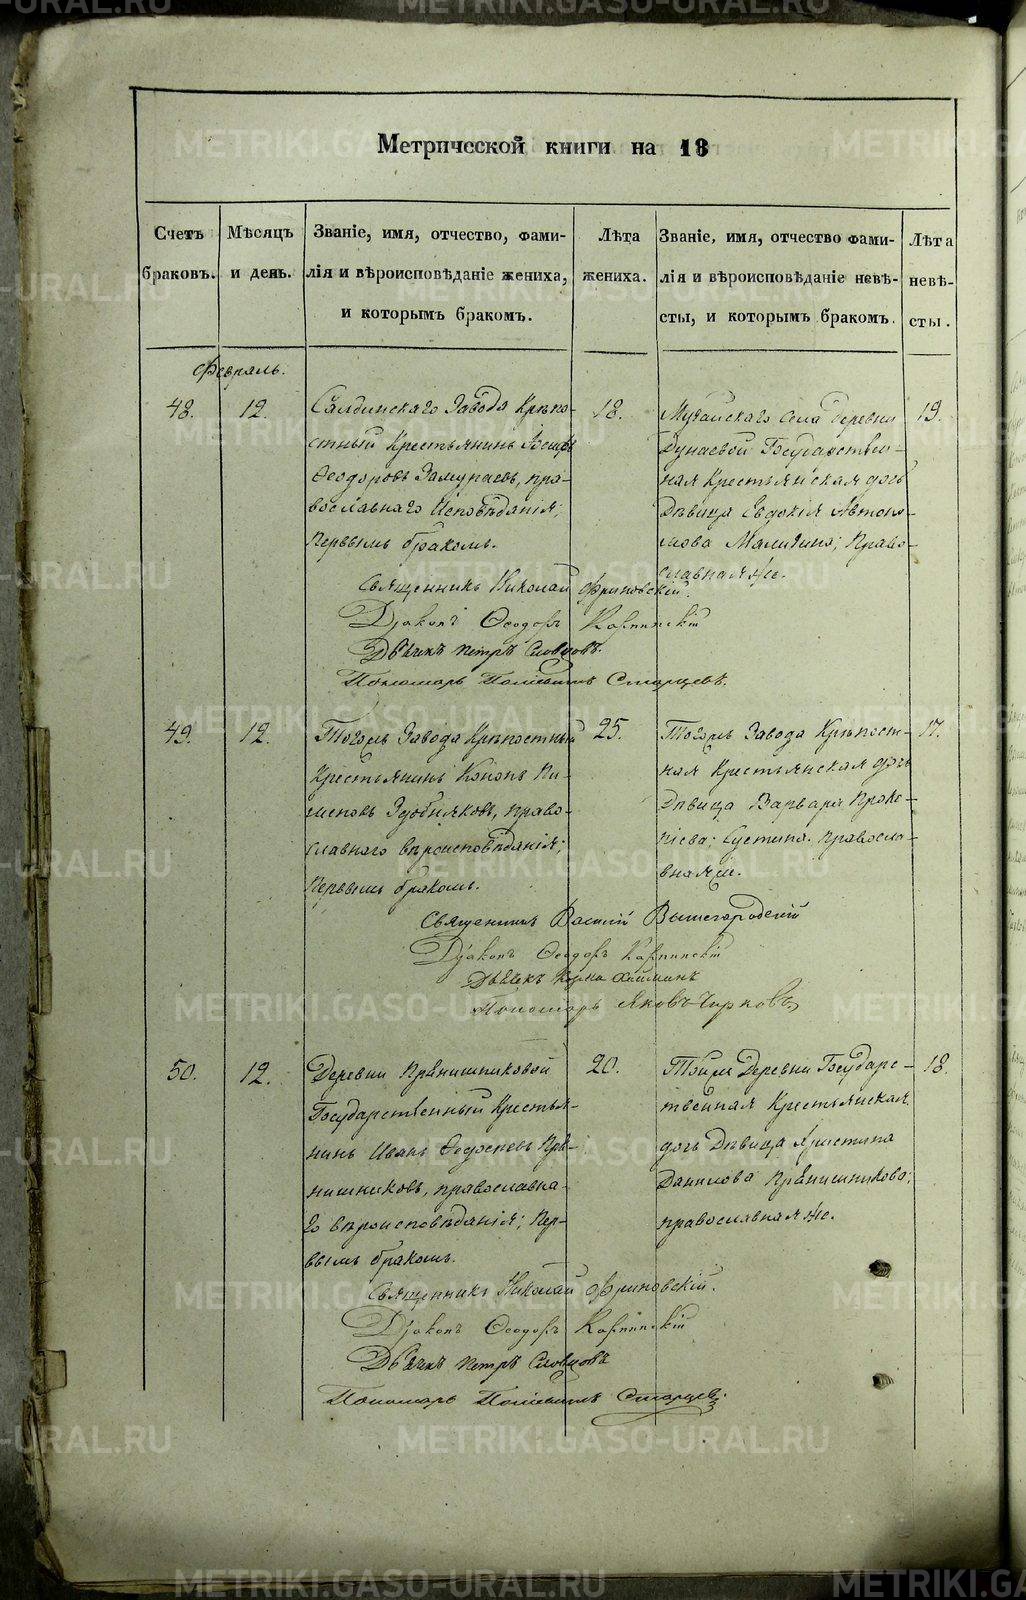 Метрической книги на 18
Счетъ браковъ.
Мѣсяцъ и день.
Званіе, имя, отчество, фами-
лія и вѣроисповѣданіе жениха,
и которымъ бракомъ.
Лѣта жениха.
Званіе, имя, отчество фами-
лія и вѣроисповѣданіе невѣ-
сты, и которымъ бракомъ.
Лѣта невѣ-
сты.
Февраль.
48.
12.
Салдинскаго Завода Крѣпо-
стный Крестьянинъ
Ѳеодоровъ пра-
вославнаго Исповѣданія;
Первымъ бракомъ.
18.
села деревни
Дунаевой Государствен-
ная Крестьянская дочь
Дѣвица Евдокія Автоно-
мова Право-
славная же.
19.
Священникъ Николай Фриновскій.
Діаконъ Ѳеодоръ Карпинскій
Дьячекъ Петръ Словцовъ.
Пономарь Старцевъ.
49.
12.
Тогожъ Завода Крѣпостный
Крестьянинъ Кононъ Пи-
меновъ Здобняковъ, право-
славнаго вѣроисповѣданія;
Первымъ бракомъ.
25.
Тогожъ Завода Крѣпост-
ная Крестьянская дочь
Дѣвица Варвара Проко-
піева; правосла-
вная
17.
Священникъ Василій Вышегородскій
Діаконъ Ѳеодоръ Карпинскій
Дьячекъ Козма
Пономарь Яковъ Чирковъ
50.
12.
Деревни Прянишниковой
Государственный Крестья-
нинъ Иванъ Ѳедосѣевъ Пря-
нишниковъ, православна-
го вѣроисповѣданія; Пер-
вымъ бракомъ.
20.
Тойже Деревни Государс-
твенная Крестьянская
дочь Дѣвица Христина
Данилова Прянишникова;
православная же.
18.
Священникъ Николай Фриновскій.
Діаконъ Ѳеодоръ Карпинскій
Дьячекъ Петръ Словцовъ
Пономарь Старцевъ.
METRIKI.GASO-URAL.RU